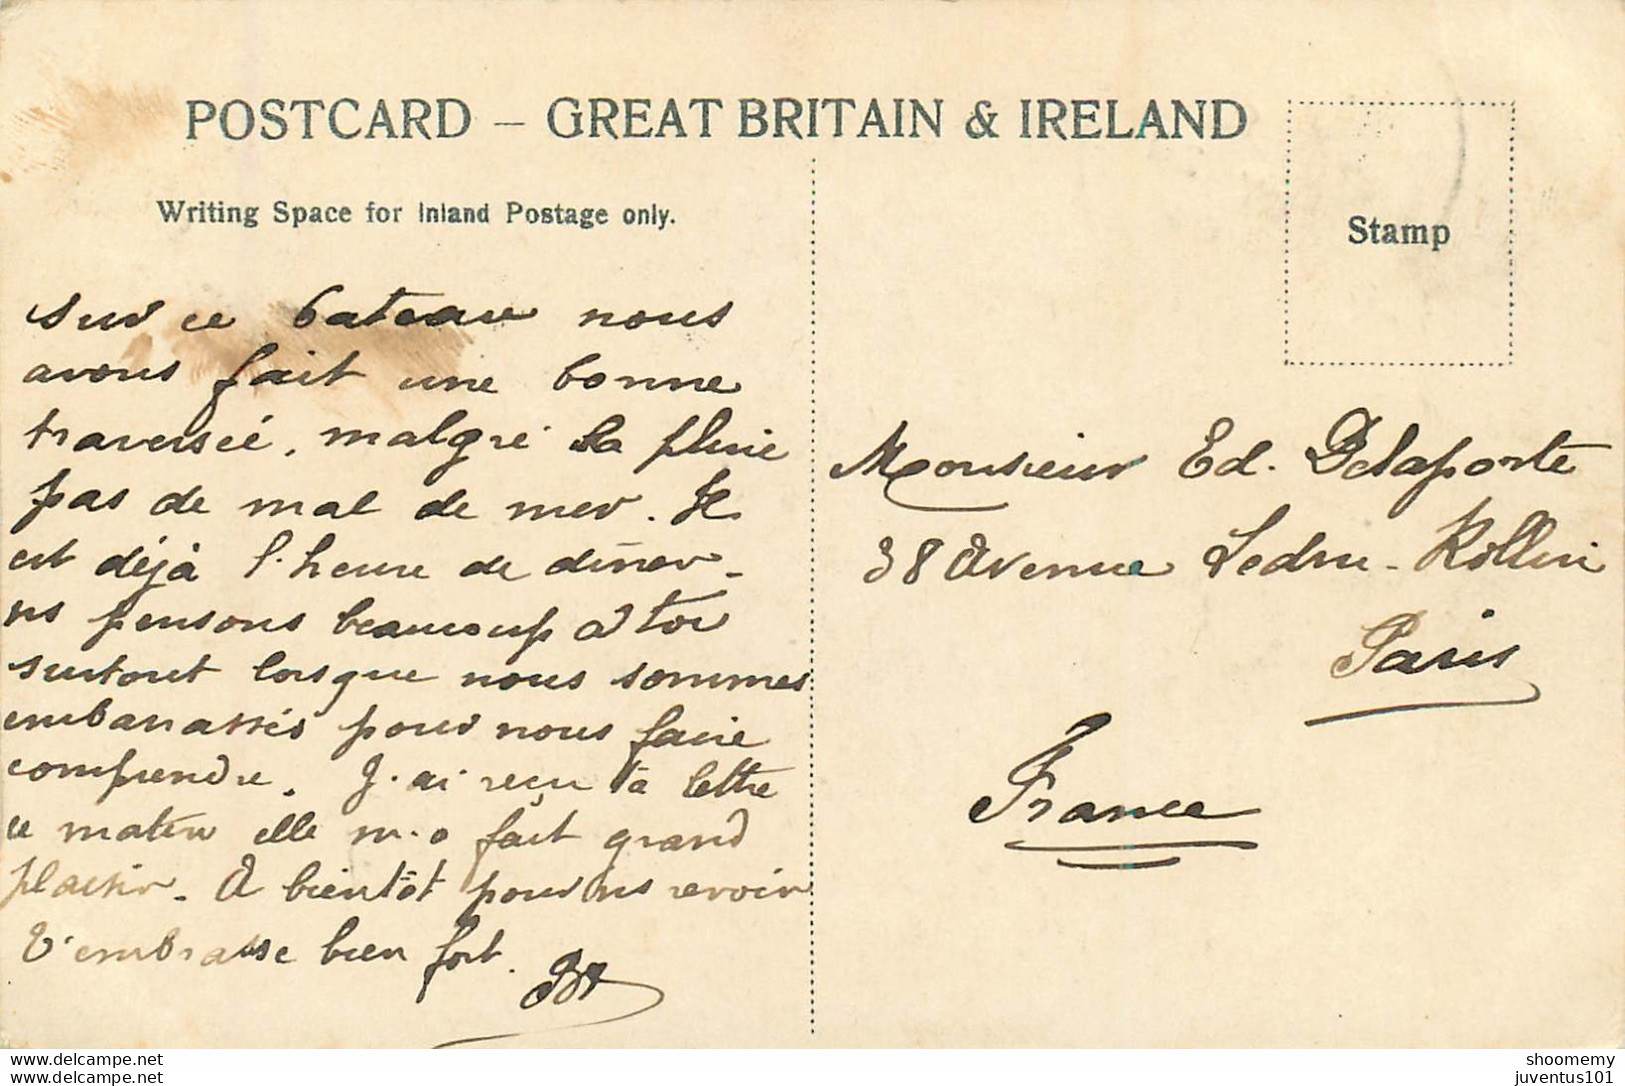 POSTCARD – GREAT BRITAIN & IRELAND
Writing Space for Inland Postage only.
Stamp
Sur ce bateau nous
avons fait une bonne
traversée, malgré la pluie
pas de mal de mer. Il
est déjà l'heure de dîner.
ns pensons beaucoup à toi
surtout lorsque nous sommes
embarrassés pour nous faire
comprendre. J'ai reçu ta lettre
ce matin elle m'a fait grand
plaisir. A bientôt pour ns revoir
T'embrasse bien fort.
Monsieur Ed. Delaporte
38 Avenue Ledru-Rollin
Paris
France
www.delcampe.net
www.delcampe.net
shoomemy
juventus101